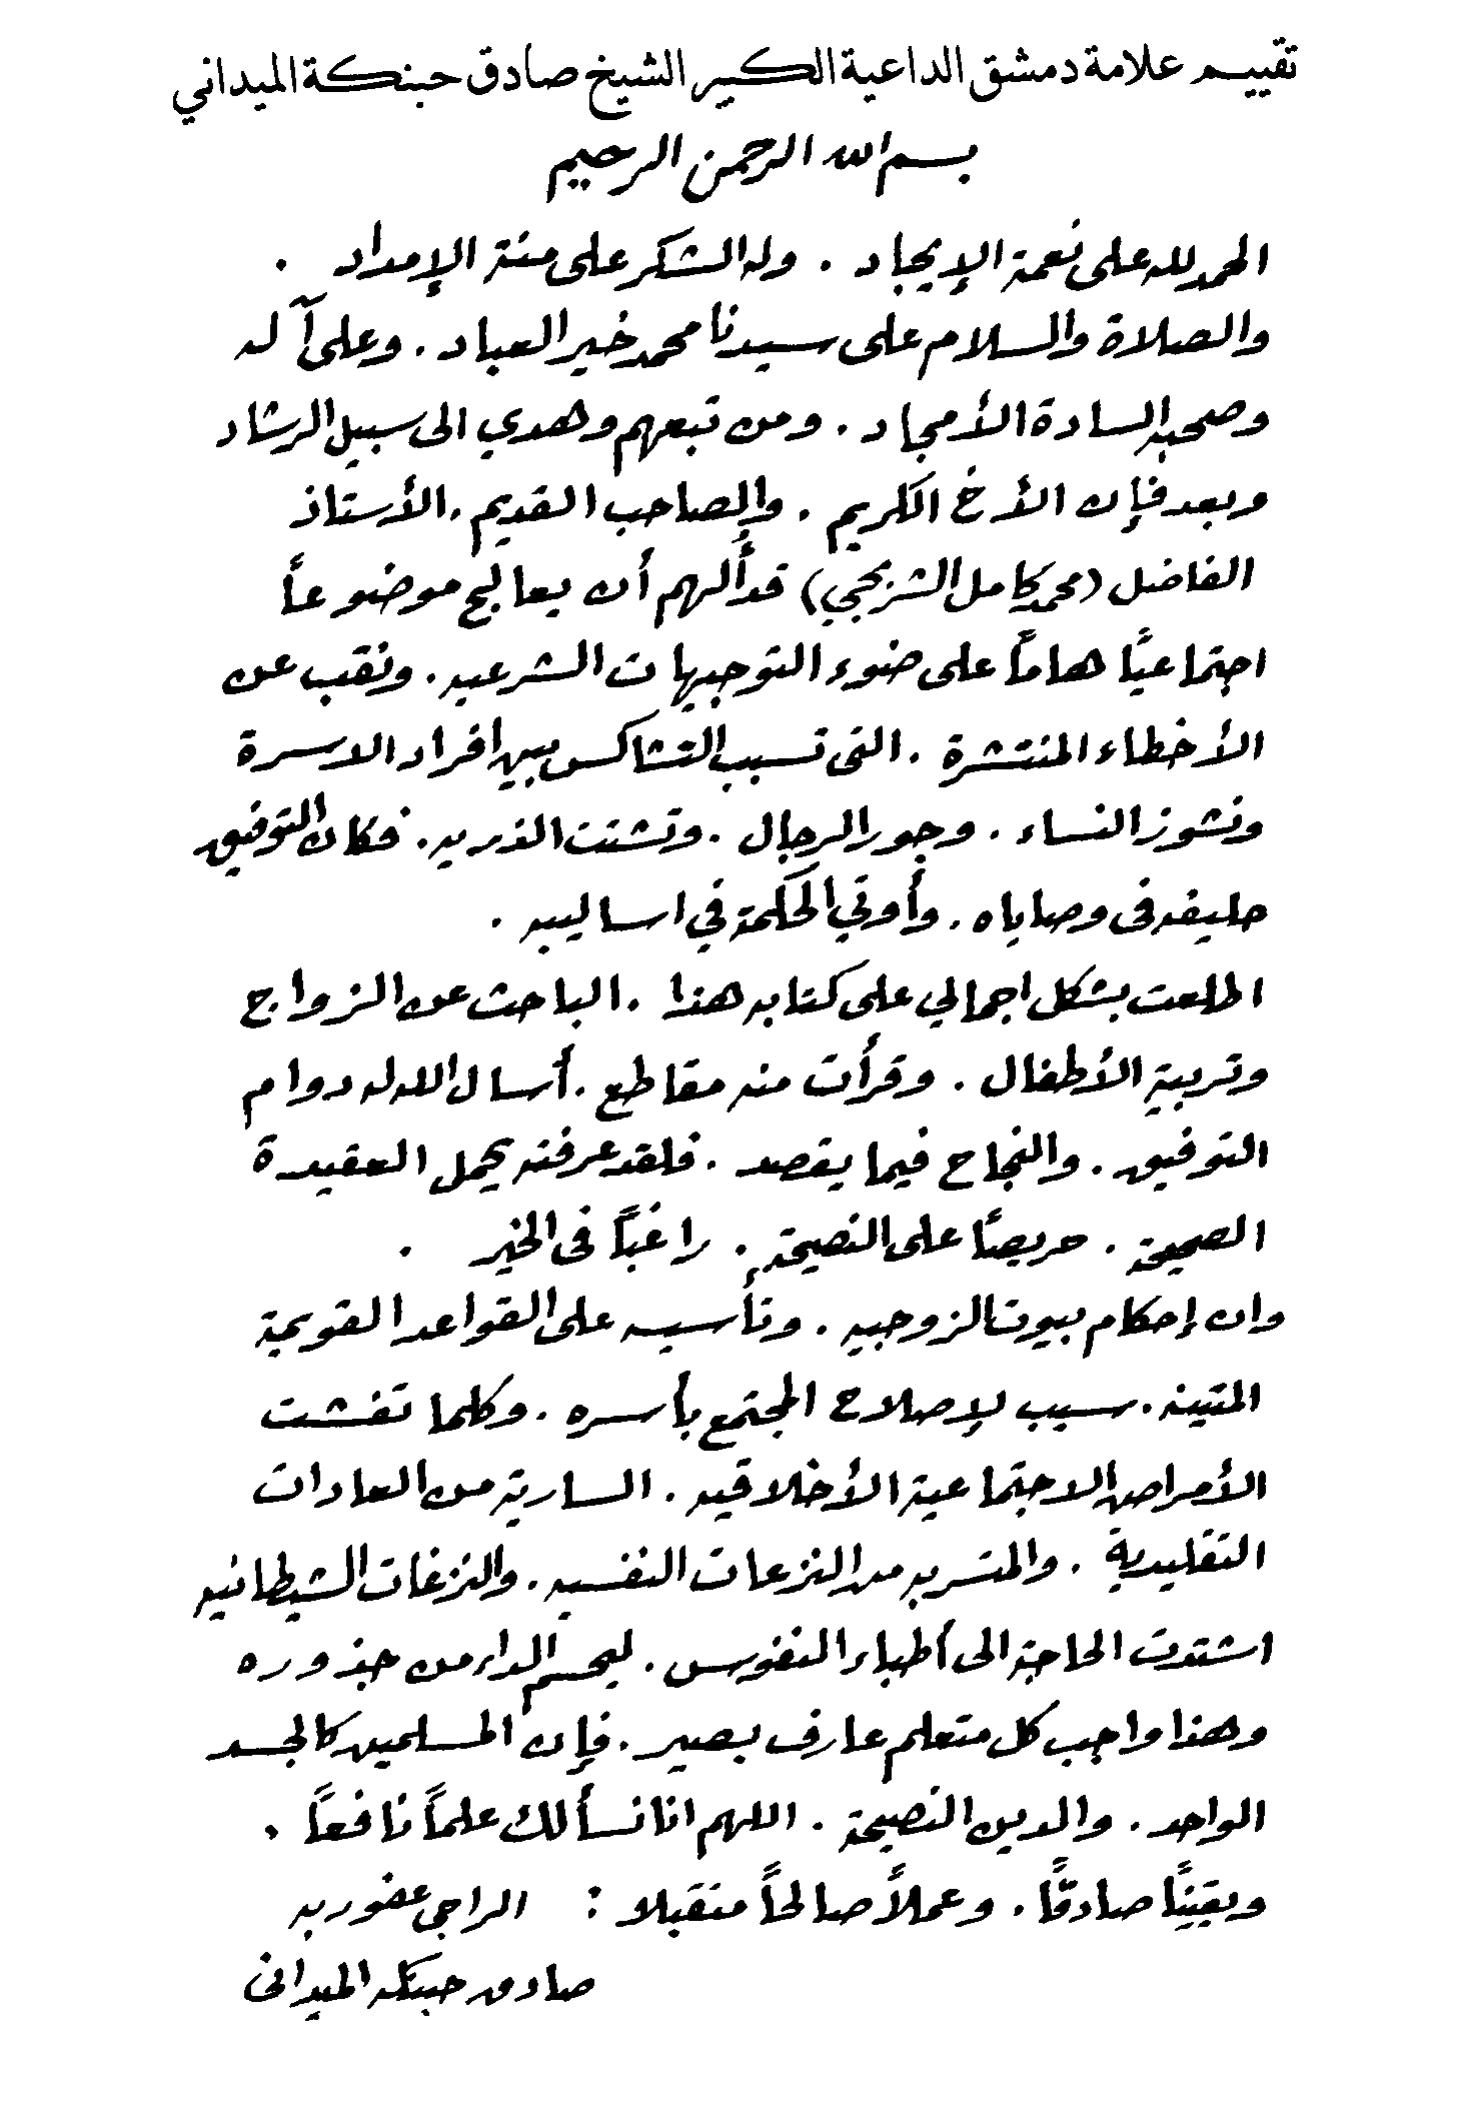 تقييم علامة دمشق الداعية الكبير الشيخ صادق حبنكة الميداني
بسم الله الرحمن الرحيم
الحمد لله على نعمة الإيجاد . وله الشكر على منة الإمداد .
والصلاة والسلام على سيدنا محمد خير العباد . وعلى آله
وصحبه السادة الأمجاد . ومن تبعهم وهدي الى سبيل الرشاد
وبعد فإن الأخ الكريم . والصاحب القديم . الأستاذ
الفاضل (محمد كامل الشربجي) قد أُلهم أن يعالج موضوعاً
اجتماعيًا هاماً على ضوء التوجيهات الشرعيه . ونقب عن
الأخطاء المنتشرة . التى تسبب التشاكس بين افراد الاسرة
ونشوز النساء . وجور الرجال . وتشتت الذريه . فكان التوفيق
حليفه فى وصاياه . وأوتي الحكمة في اساليبه .
اطلعت بشكل اجمالي على كتابه هذا . الباحث عن الزواج
وتربية الأطفال . وقرأت منه مقاطع . أسال الله له دوام
التوفيق . والنجاح فيما يقصد . فلقد عرفته يحمل العقيدة
الصحيحة . حريصًا على النصيحة . راغباً فى الخير .
وان إحكام بيوت الزوجيه . وتأسيسه على القواعد القويمة
المتينه . سبب لإصلاح المجتمع بأسره . وكلما تفشت
الأمراض الاجتماعية الأخلاقيه . السارية من العادات
التقليدية . والمتسربه من النزعات النفسيه . والنزغات الشيطانيه
اشتدت الحاجة الى أطباء النفوس . ليحسم الداء من جذوره
وهذا واجب كل متعلم عارف بصير . فإن المسلمين كالجسد
الواحد . والدين النصيحة . اللهم انا نسألك علماً نافعاً .
ويقينًا صادقًا . وعملاً صالحاً متقبلا : الراجى عفو ربه
صادق حبنكه الميدانى